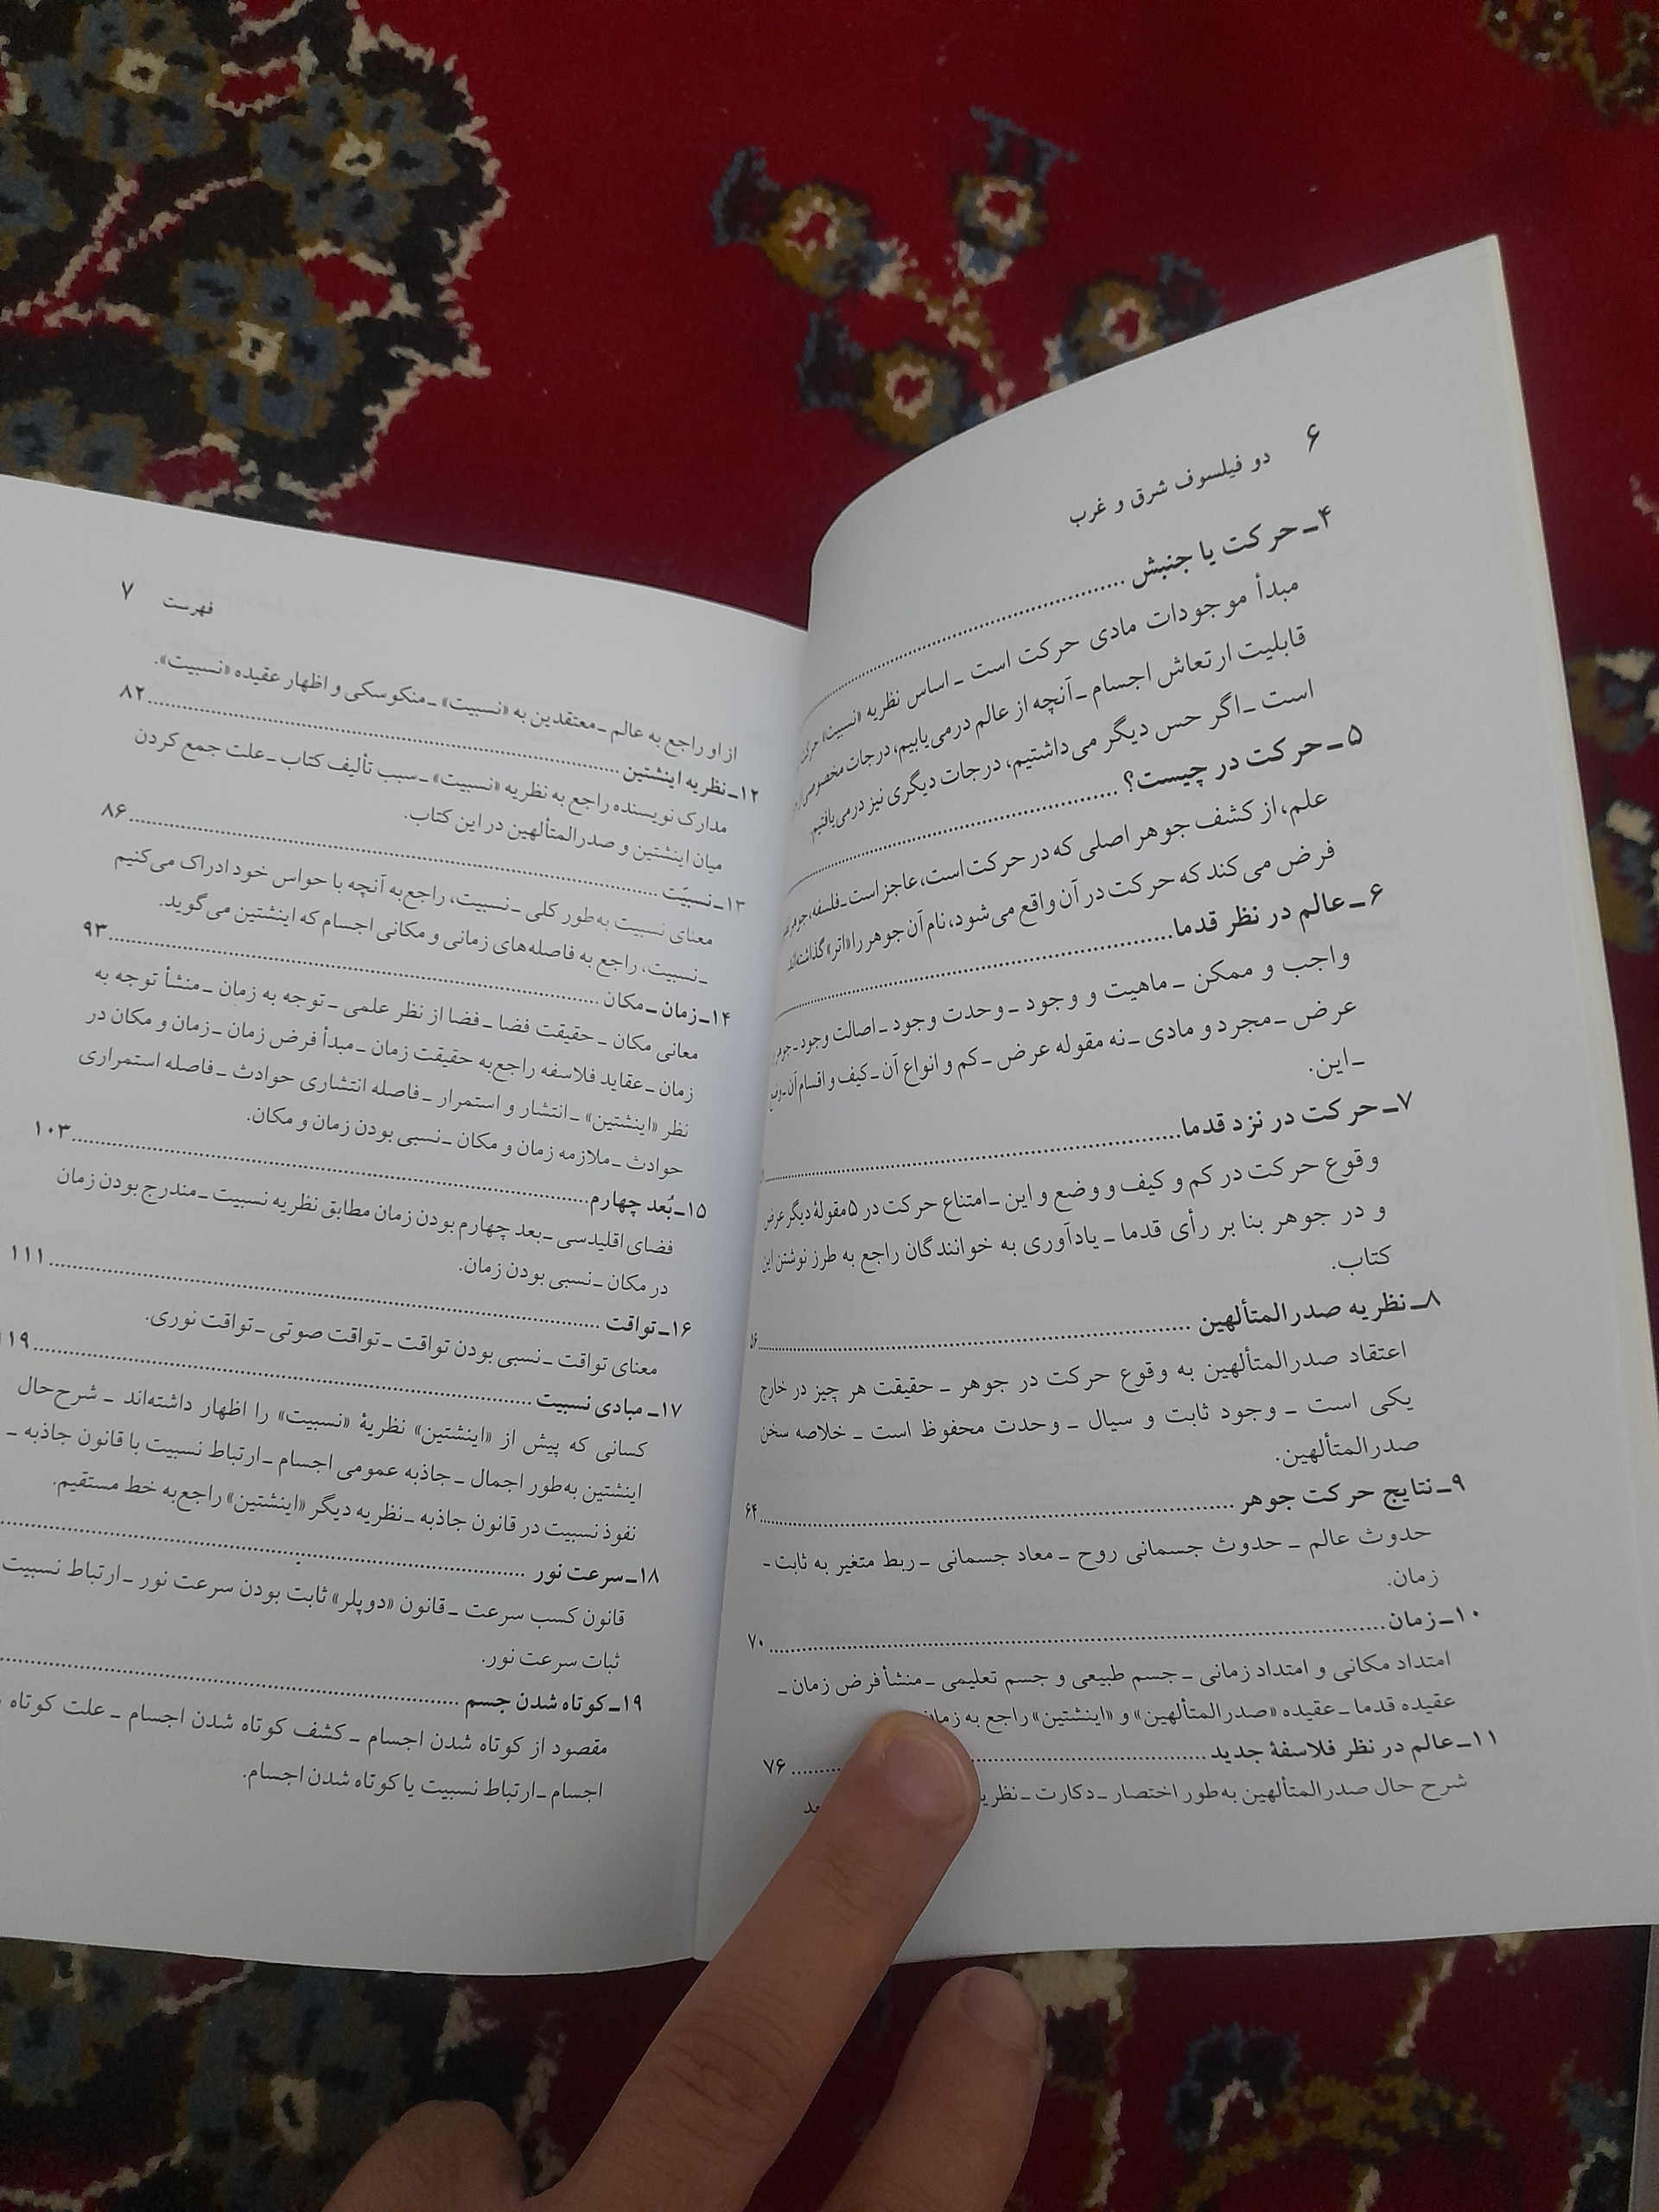 ۶ دو فیلسوف شرق و غرب
۴ـ حرکت یا جنبش ........................
مبدأ موجودات مادی حرکت است ـ اساس نظریه «نسبیت» حرکت
قابلیت ارتعاش اجسام ـ آنچه از عالم درمی‌یابیم، درجات مخصوصی از
است ـ اگر حس دیگر می‌داشتیم، درجات دیگری نیز درمی‌یافتیم.
۵ـ حرکت در چیست؟ ........................
علم، از کشف جوهر اصلی که در حرکت است، عاجز است ـ فلسفه، جوهر
فرض می‌کند که حرکت در آن واقع می‌شود، نام آن جوهر را «اتر» گذاشته‌اند.
۶ـ عالم در نظر قدما ........................
واجب و ممکن ـ ماهیت و وجود ـ وحدت وجود ـ اصالت وجود ـ جوهر و
عرض ـ مجرد و مادی ـ نه مقوله عرض ـ کم و انواع آن ـ کیف و اقسام آن ـ وضع
ـ این.
۷ـ حرکت در نزد قدما ........................
وقوع حرکت در کم و کیف و وضع و این ـ امتناع حرکت در ۵ مقولهٔ دیگر عرض
و در جوهر بنا بر رأی قدما ـ یادآوری به خوانندگان راجع به طرز نوشتن این
کتاب.
۸ـ نظریه صدرالمتألهین ........................ ۵۶
اعتقاد صدرالمتألهین به وقوع حرکت در جوهر ـ حقیقت هر چیز در خارج
یکی است ـ وجود ثابت و سیال ـ وحدت محفوظ است ـ خلاصه سخن
صدرالمتألهین.
۹ـ نتایج حرکت جوهر ........................ ۶۴
حدوث عالم ـ حدوث جسمانی روح ـ معاد جسمانی ـ ربط متغیر به ثابت ـ
زمان.
۱۰ـ زمان ........................ ۷۰
امتداد مکانی و امتداد زمانی ـ جسم طبیعی و جسم تعلیمی ـ منشأ فرض زمان ـ
عقیده قدما ـ عقیده «صدرالمتألهین» و «اینشتین» راجع به زمان
۱۱ـ عالم در نظر فلاسفهٔ جدید ........................ ۷۶
شرح حال صدرالمتألهین به‌طور اختصار ـ دکارت ـ نظریه
فهرست ۷
از او راجع به عالم ـ معتقدین به «نسبیت» ـ منکوسکی و اظهار عقیده «نسبیت».
۱۲ـ نظریه اینشتین ........................ ۸۲
مدارک نویسنده راجع به نظریه «نسبیت» ـ سبب تألیف کتاب ـ علت جمع کردن
میان اینشتین و صدرالمتألهین در این کتاب.
۱۳ـ نسبیّت ........................ ۸۶
معنای نسبیت به‌طور کلی ـ نسبیت، راجع به آنچه با حواس خود ادراک می‌کنیم
ـ نسبیت، راجع به فاصله‌های زمانی و مکانی اجسام که اینشتین می‌گوید.
۱۴ـ زمان ـ مکان ........................ ۹۳
معانی مکان ـ حقیقت فضا ـ فضا از نظر علمی ـ توجه به زمان ـ منشأ توجه به
زمان ـ عقاید فلاسفه راجع به حقیقت زمان ـ مبدأ فرض زمان ـ زمان و مکان در
نظر «اینشتین» ـ انتشار و استمرار ـ فاصله انتشاری حوادث ـ فاصله استمراری
حوادث ـ ملازمه زمان و مکان ـ نسبی بودن زمان و مکان.
۱۵ـ بُعد چهارم ........................ ۱۰۳
فضای اقلیدسی ـ بعد چهارم بودن زمان مطابق نظریه نسبیت ـ مندرج بودن زمان
در مکان ـ نسبی بودن زمان.
۱۶ـ تواقت ........................ ۱۱۱
معنای تواقت ـ نسبی بودن تواقت ـ تواقت صوتی ـ تواقت نوری.
۱۷ـ مبادی نسبیت ........................ ۱۱۹
کسانی که پیش از «اینشتین» نظریهٔ «نسبیت» را اظهار داشته‌اند ـ شرح حال
اینشتین به‌طور اجمال ـ جاذبه عمومی اجسام ـ ارتباط نسبیت با قانون جاذبه ـ
نفوذ نسبیت در قانون جاذبه ـ نظریه دیگر «اینشتین» راجع به خط مستقیم.
۱۸ـ سرعت نور ........................
قانون کسب سرعت ـ قانون «دوپلر» ثابت بودن سرعت نور ـ ارتباط نسبیت
ثبات سرعت نور.
۱۹ـ کوتاه شدن جسم ........................
مقصود از کوتاه شدن اجسام ـ کشف کوتاه شدن اجسام ـ علت کوتاه
اجسام ـ ارتباط نسبیت یا کوتاه شدن اجسام.